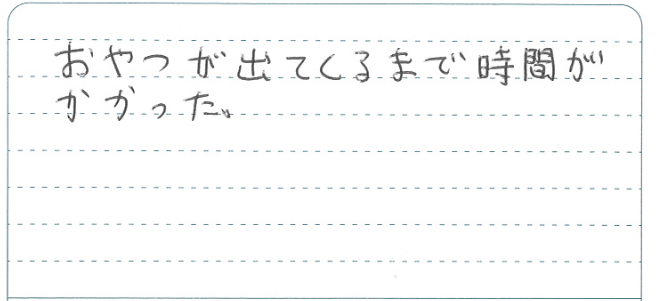 おやつが出てくるまで時間が
かかった。